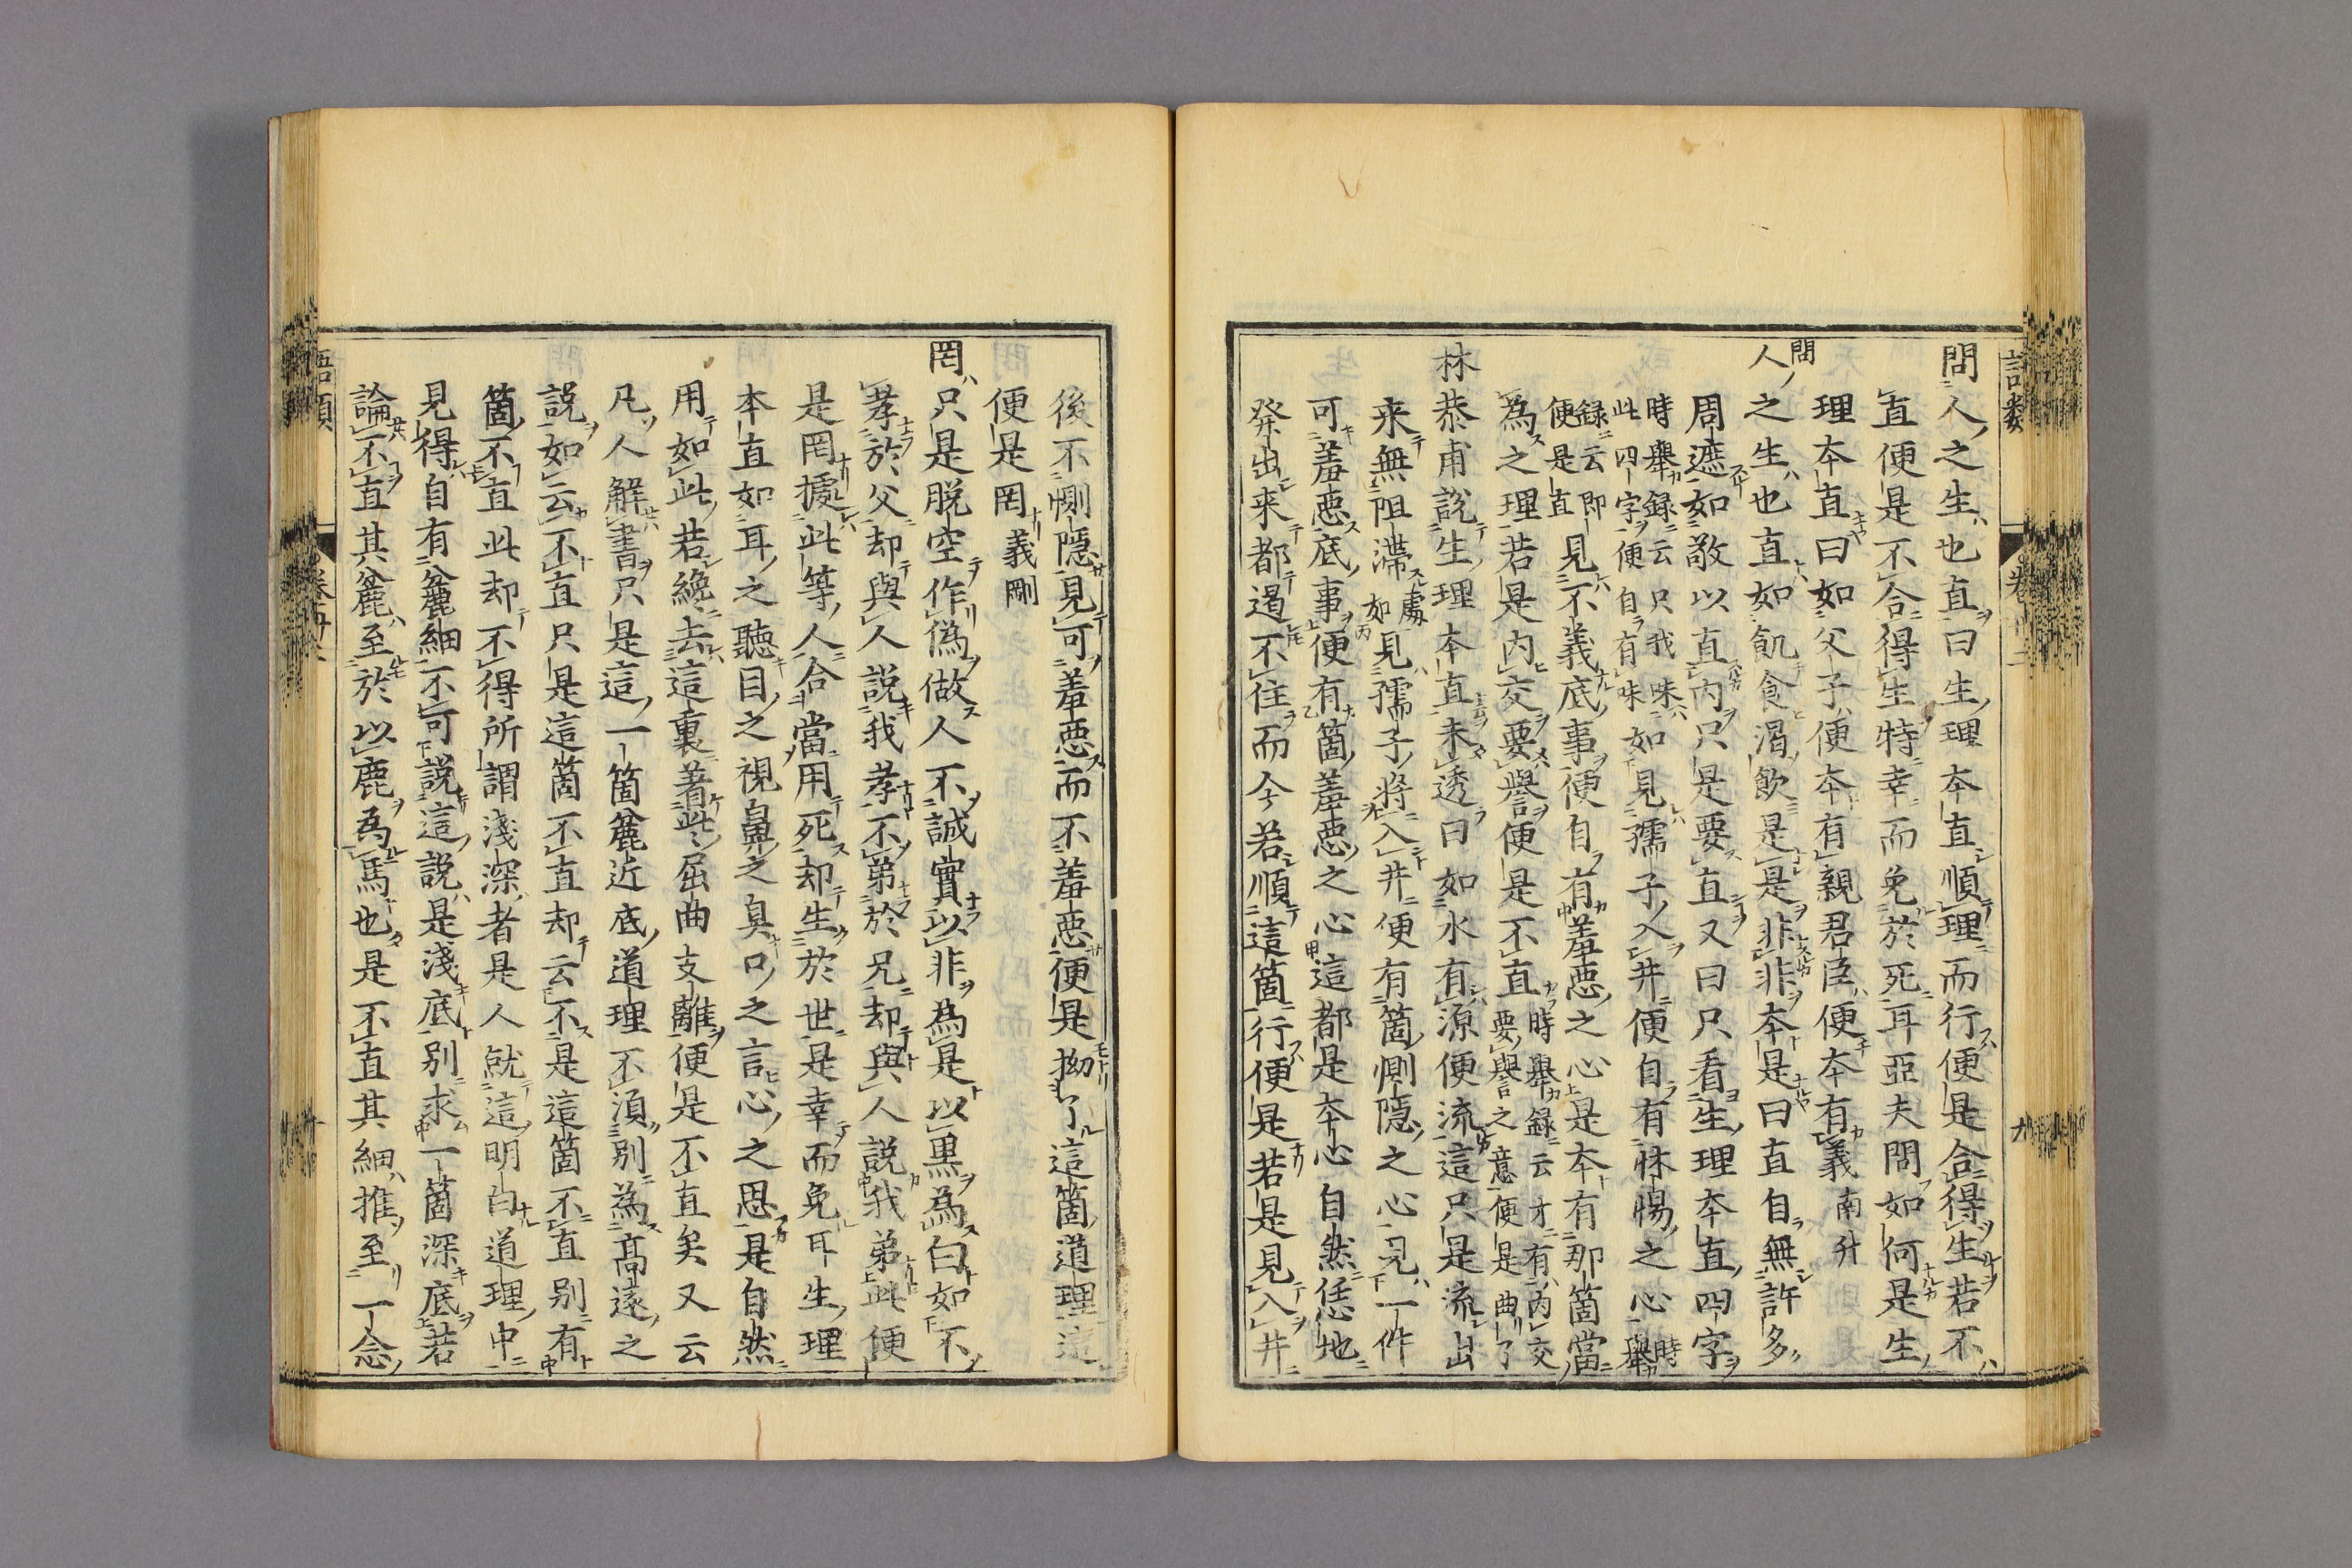 語類
卷三十二
九
問人之生也直曰生理本直順理而行便是合得生若不
直便是不合得生特幸而免於死耳亞夫問如何是生
理本直曰如父子便本有親君臣便本有義南升
問
人之生也直如飢食渴飲是是非非本是曰直自無許多
周遮如敬以直內只是要直又曰只看生理本直四字
時舉錄云只我味
此四字便自有味如見孺子入井便自有怵惕之心時
舉
錄云即見不義底事便自有羞惡之心是本有那箇當
便是直
為之理若是內交要譽便是不直時舉錄云才有內交
要譽之意便是曲了
林恭甫說生理本直未透曰如水有源便流這只是流出
来無阻滯處
如見孺子將入井便有箇惻隱之心見一件
可羞惡底事便有箇羞惡之心這都是本心自然恁地
發出来都遏不住而今若順這箇行便是若是見入井
後不惻隱見可羞惡而不羞惡便是拗了這箇道理這
便是罔義剛
罔只是脱空作偽做人不誠實以非為是以黒為白如不
孝於父却與人説我孝不弟於兄却與人説我弟此便
是罔據此等人合當用死却生於世是幸而免耳生理
本直如耳之聽目之視鼻之臭口之言心之思是自然
用如此若纔去這裏著些屈曲支離便是不直矣又云
凡人解書只是這一箇麄近底道理不須別為高遠之
説如云不直只是這箇不直却云不是這箇不直別有
箇不直此却不得所謂淺深者是人就這明白道理中
見得自有麄細不可説這説是淺底別求一箇深底若
論不直其麄至於以鹿為馬也是不直其細推至一念
語類